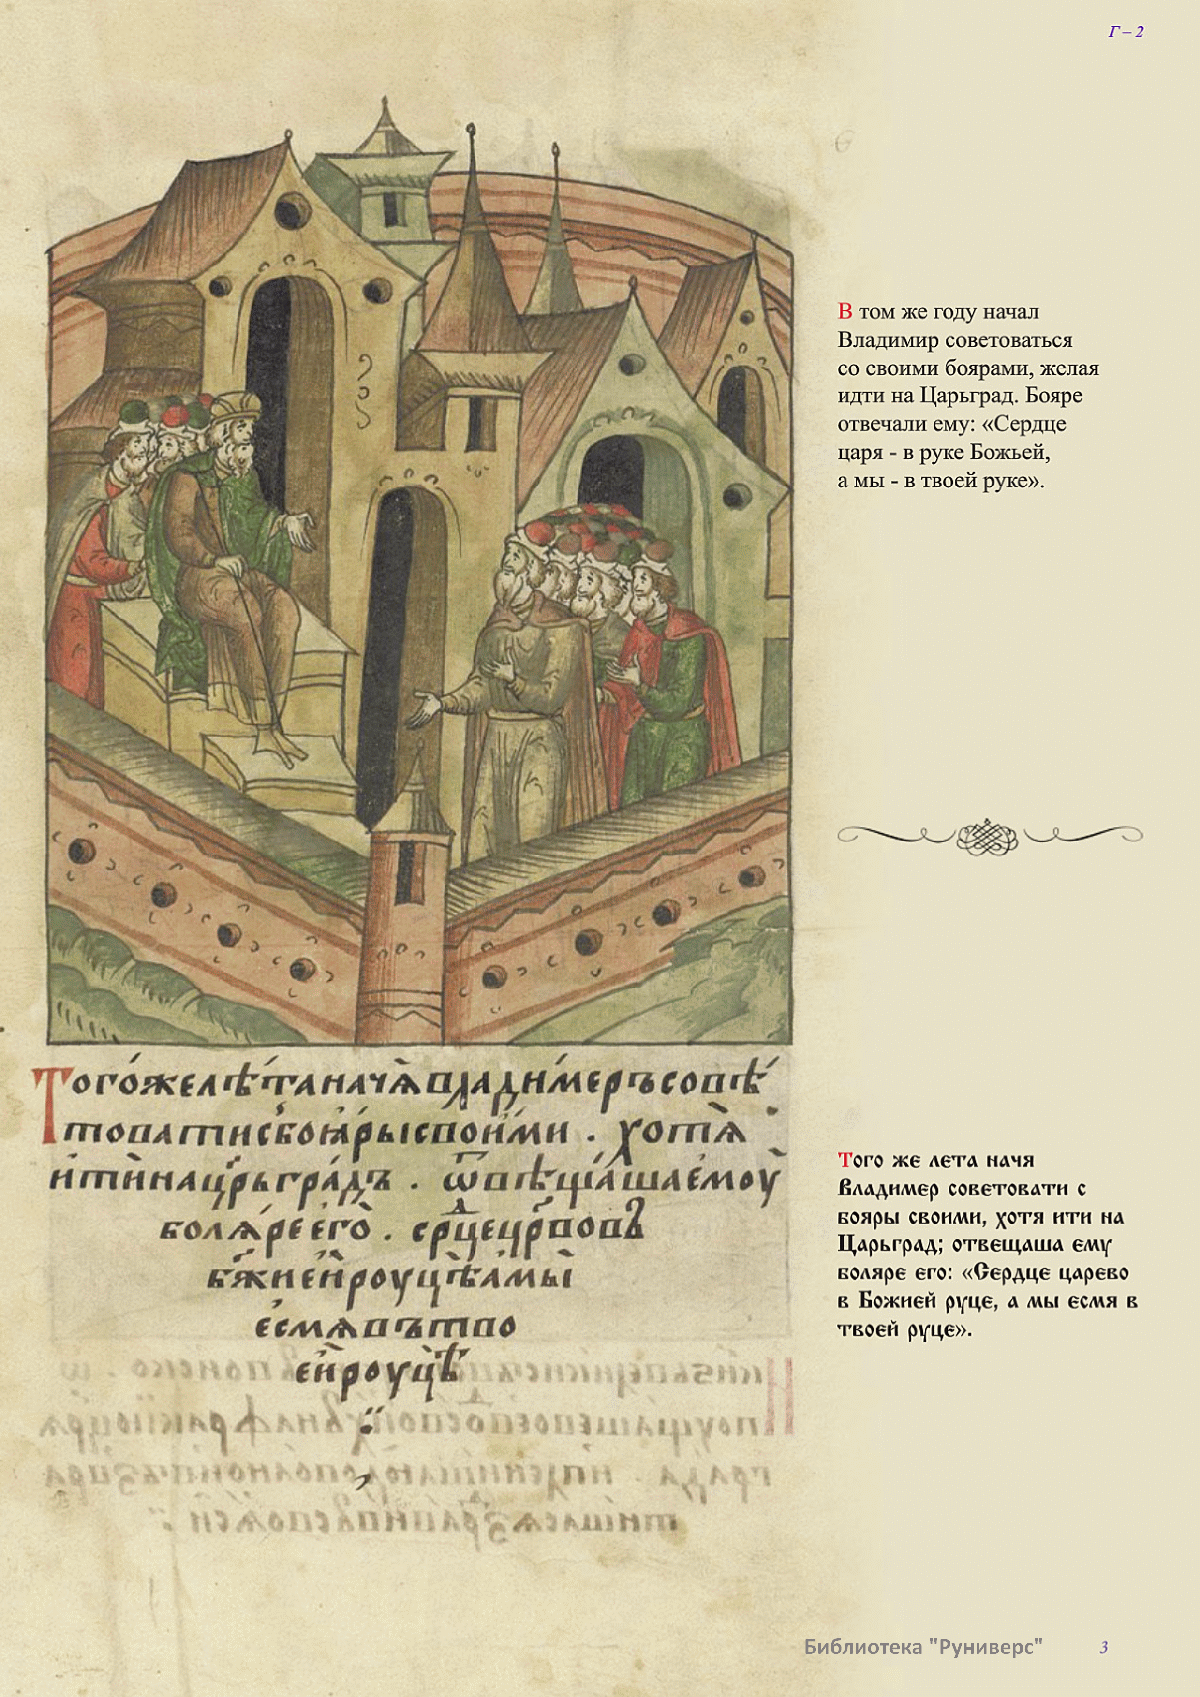 Г – 2
В том же году начал
Владимир советоваться
со своими боярами, желая
идти на Царьград. Бояре
отвечали ему: «Сердце
царя - в руке Божьей,
а мы - в твоей руке».
Тогожелѣтаначѧвладимеръсовѣ
товатисбоѧрысвоими . хотѧ
итинацр҃ьградъ . ѿвѣщашаемоу
болѧреего . срд҃цецр҃вовъ
бж҃иейроуцѣамы
есмѧвътво
ейроуцѣ
Того же лета начя
Владимер советовати с
бояры своими, хотя ити на
Царьград; отвещаша ему
боляре его: «Сердце царево
в Божией руце, а мы есмя в
твоей руце».
Библиотека "Руниверс" 3